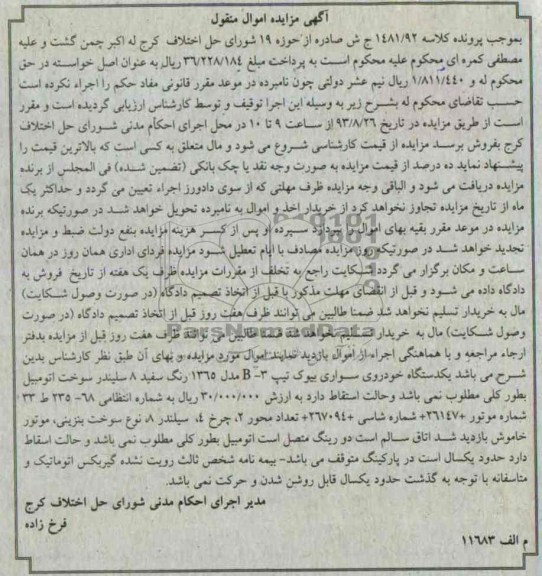 آگهی مزایده اموال منقول
بموجب پرونده کلاسه ۱۴۸۱/۹۲ ج ش صادره از حوزه ۱۹ شورای حل اختلاف کرج له اکبر چمن گشت و علیه
مصطفی کمره ای محکوم علیه محکوم است به پرداخت مبلغ ۳۶/۲۲۸/۱۸۴ ریال به عنوان اصل خواسته در حق
محکوم له و ۱/۸۱۱/۴۴۰ ریال نیم عشر دولتی چون نامبرده در موعد مقرر قانونی مفاد حکم را اجراء نکرده است
حسب تقاضای محکوم له بشرح زیر به وسیله این اجرا توقیف و توسط کارشناس ارزیابی گردیده است و مقرر
است از طریق مزایده در تاریخ ۹۳/۸/۲۶ از ساعت ۹ تا ۱۰ در محل اجرای احکام مدنی شورای حل اختلاف
کرج بفروش برسد مزایده از قیمت کارشناسی شروع می شود و مال متعلق به کسی است که بالاترین قیمت را
پیشنهاد نماید ده درصد از قیمت مزایده به صورت وجه نقد یا چک بانکی (تضمین شده) فی المجلس از برنده
مزایده دریافت می شود و الباقی وجه مزایده ظرف مهلتی که از سوی دادورز اجراء تعیین می گردد و حداکثر یک
ماه از تاریخ مزایده تجاوز نخواهد کرد از خریدار اخذ و اموال به نامبرده تحویل خواهد شد در صورتیکه برنده
مزایده در موعد مقرر بقیه بهای اموال را نپردازد سپرده او پس از کسر هزینه مزایده بنفع دولت ضبط و مزایده
تجدید خواهد شد در صورتیکه روز مزایده مصادف با ایام تعطیل شود مزایده فردای اداری همان روز در همان
ساعت و مکان برگزار می گردد شکایت راجع به تخلف از مقررات مزایده ظرف یک هفته از تاریخ فروش به
دادگاه داده می شود و قبل از انقضای مهلت مذکور یا قبل از اتخاذ تصمیم دادگاه (در صورت وصول شکایت)
مال به خریدار تسلیم نخواهد شد ضمنا طالبین می توانند ظرف هفت روز قبل از اتخاذ تصمیم دادگاه (در صورت
وصول شکایت) مال به خریدار تسلیم نخواهد شد ضمنا طالبین می توانند ظرف هفت روز قبل از مزایده بدفتر
اجراء مراجعه و با هماهنگی اجراء از اموال بازدید نمایند اموال مورد مزایده و بهای آن طبق نظر کارشناس بدین
شرح می باشد یکدستگاه خودروی سواری بیوک تیپ B-۳ مدل ۱۳۶۵ رنگ سفید ۸ سلیندر سوخت اتومبیل
بطور کلی مطلوب نمی باشد وحالت اسقاط دارد به ارزش ۳۰/۰۰۰/۰۰۰ ریال به شماره انتظامی ۶۸- ۲۳۵ ط ۳۳
شماره موتور ۲۶۱۴۷+ شماره شاسی ۲۶۷۰۹۴+ تعداد محور ۲، چرخ ۴، سیلندر ۸، نوع سوخت بنزینی، موتور
خاموش بازدید شد اتاق سالم است دو رینگ متصل است اتومبیل بطور کلی مطلوب نمی باشد و حالت اسقاط
دارد حدود یکسال است در پارکینگ متوقف می باشد- بیمه نامه شخص ثالث رویت نشده گیربکس اتوماتیک و
متاسفانه با توجه به گذشت حدود یکسال قابل روشن شدن و حرکت نمی باشد.
مدیر اجرای احکام مدنی شورای حل اختلاف کرج
فرخ زاده
م الف ۱۱۶۸۳
ParsNamadData